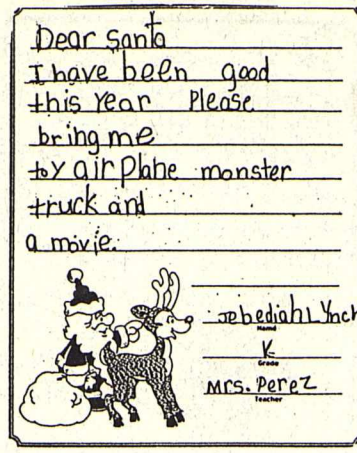 Dear Santa
I have been good
this Year Please
bring me
toy airplane monster
truck and
a movie.
Jebediah Lynch
Name
K
Grade
Mrs. Perez
Teacher